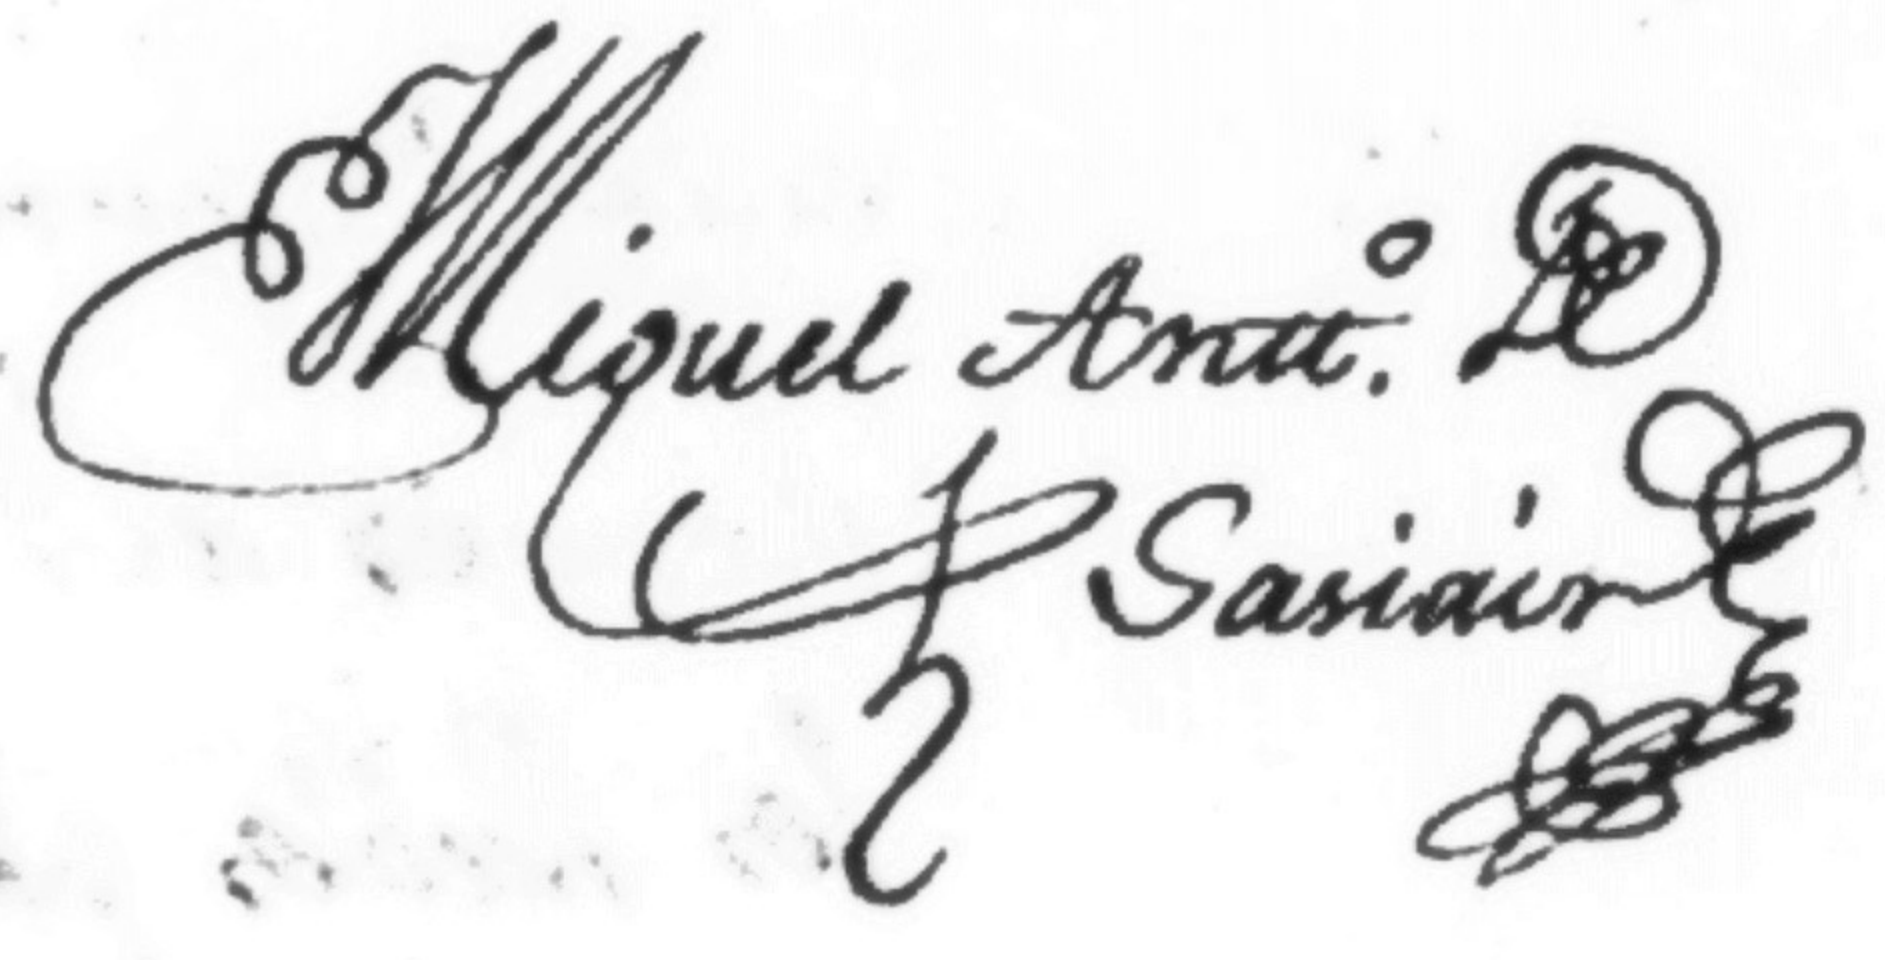 Miguel Antt.º De
Sasiain